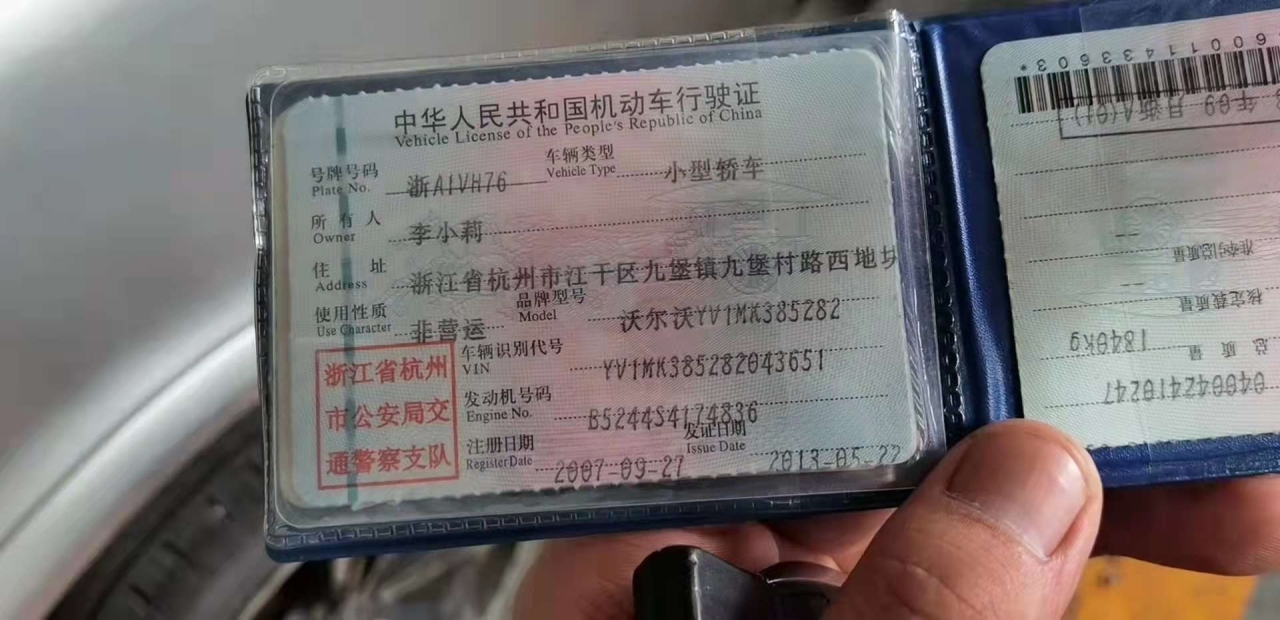 中华人民共和国机动车行驶证
Vehicle License of the People's Republic of China
号牌号码 浙A1VH76 车辆类型 小型轿车
Plate No. Vehicle Type
所有人 李小莉
Owner
住址 浙江省杭州市江干区九堡镇九堡村路西地块
Address
使用性质 非营运 品牌型号 沃尔沃YV1MK385282
Use Character Model
浙江省杭州
市公安局交
通警察支队
车辆识别代号 YV1MK385282043651
VIN
发动机号码 B5244S4174836
Engine No.
注册日期 2007-09-27 发证日期 2013-05-22
Register Date Issue Date
04004Z410247
总质量 1840kg
核定载质量 --
准牵引总质量 --
年09月浙A(01)
60011433603*